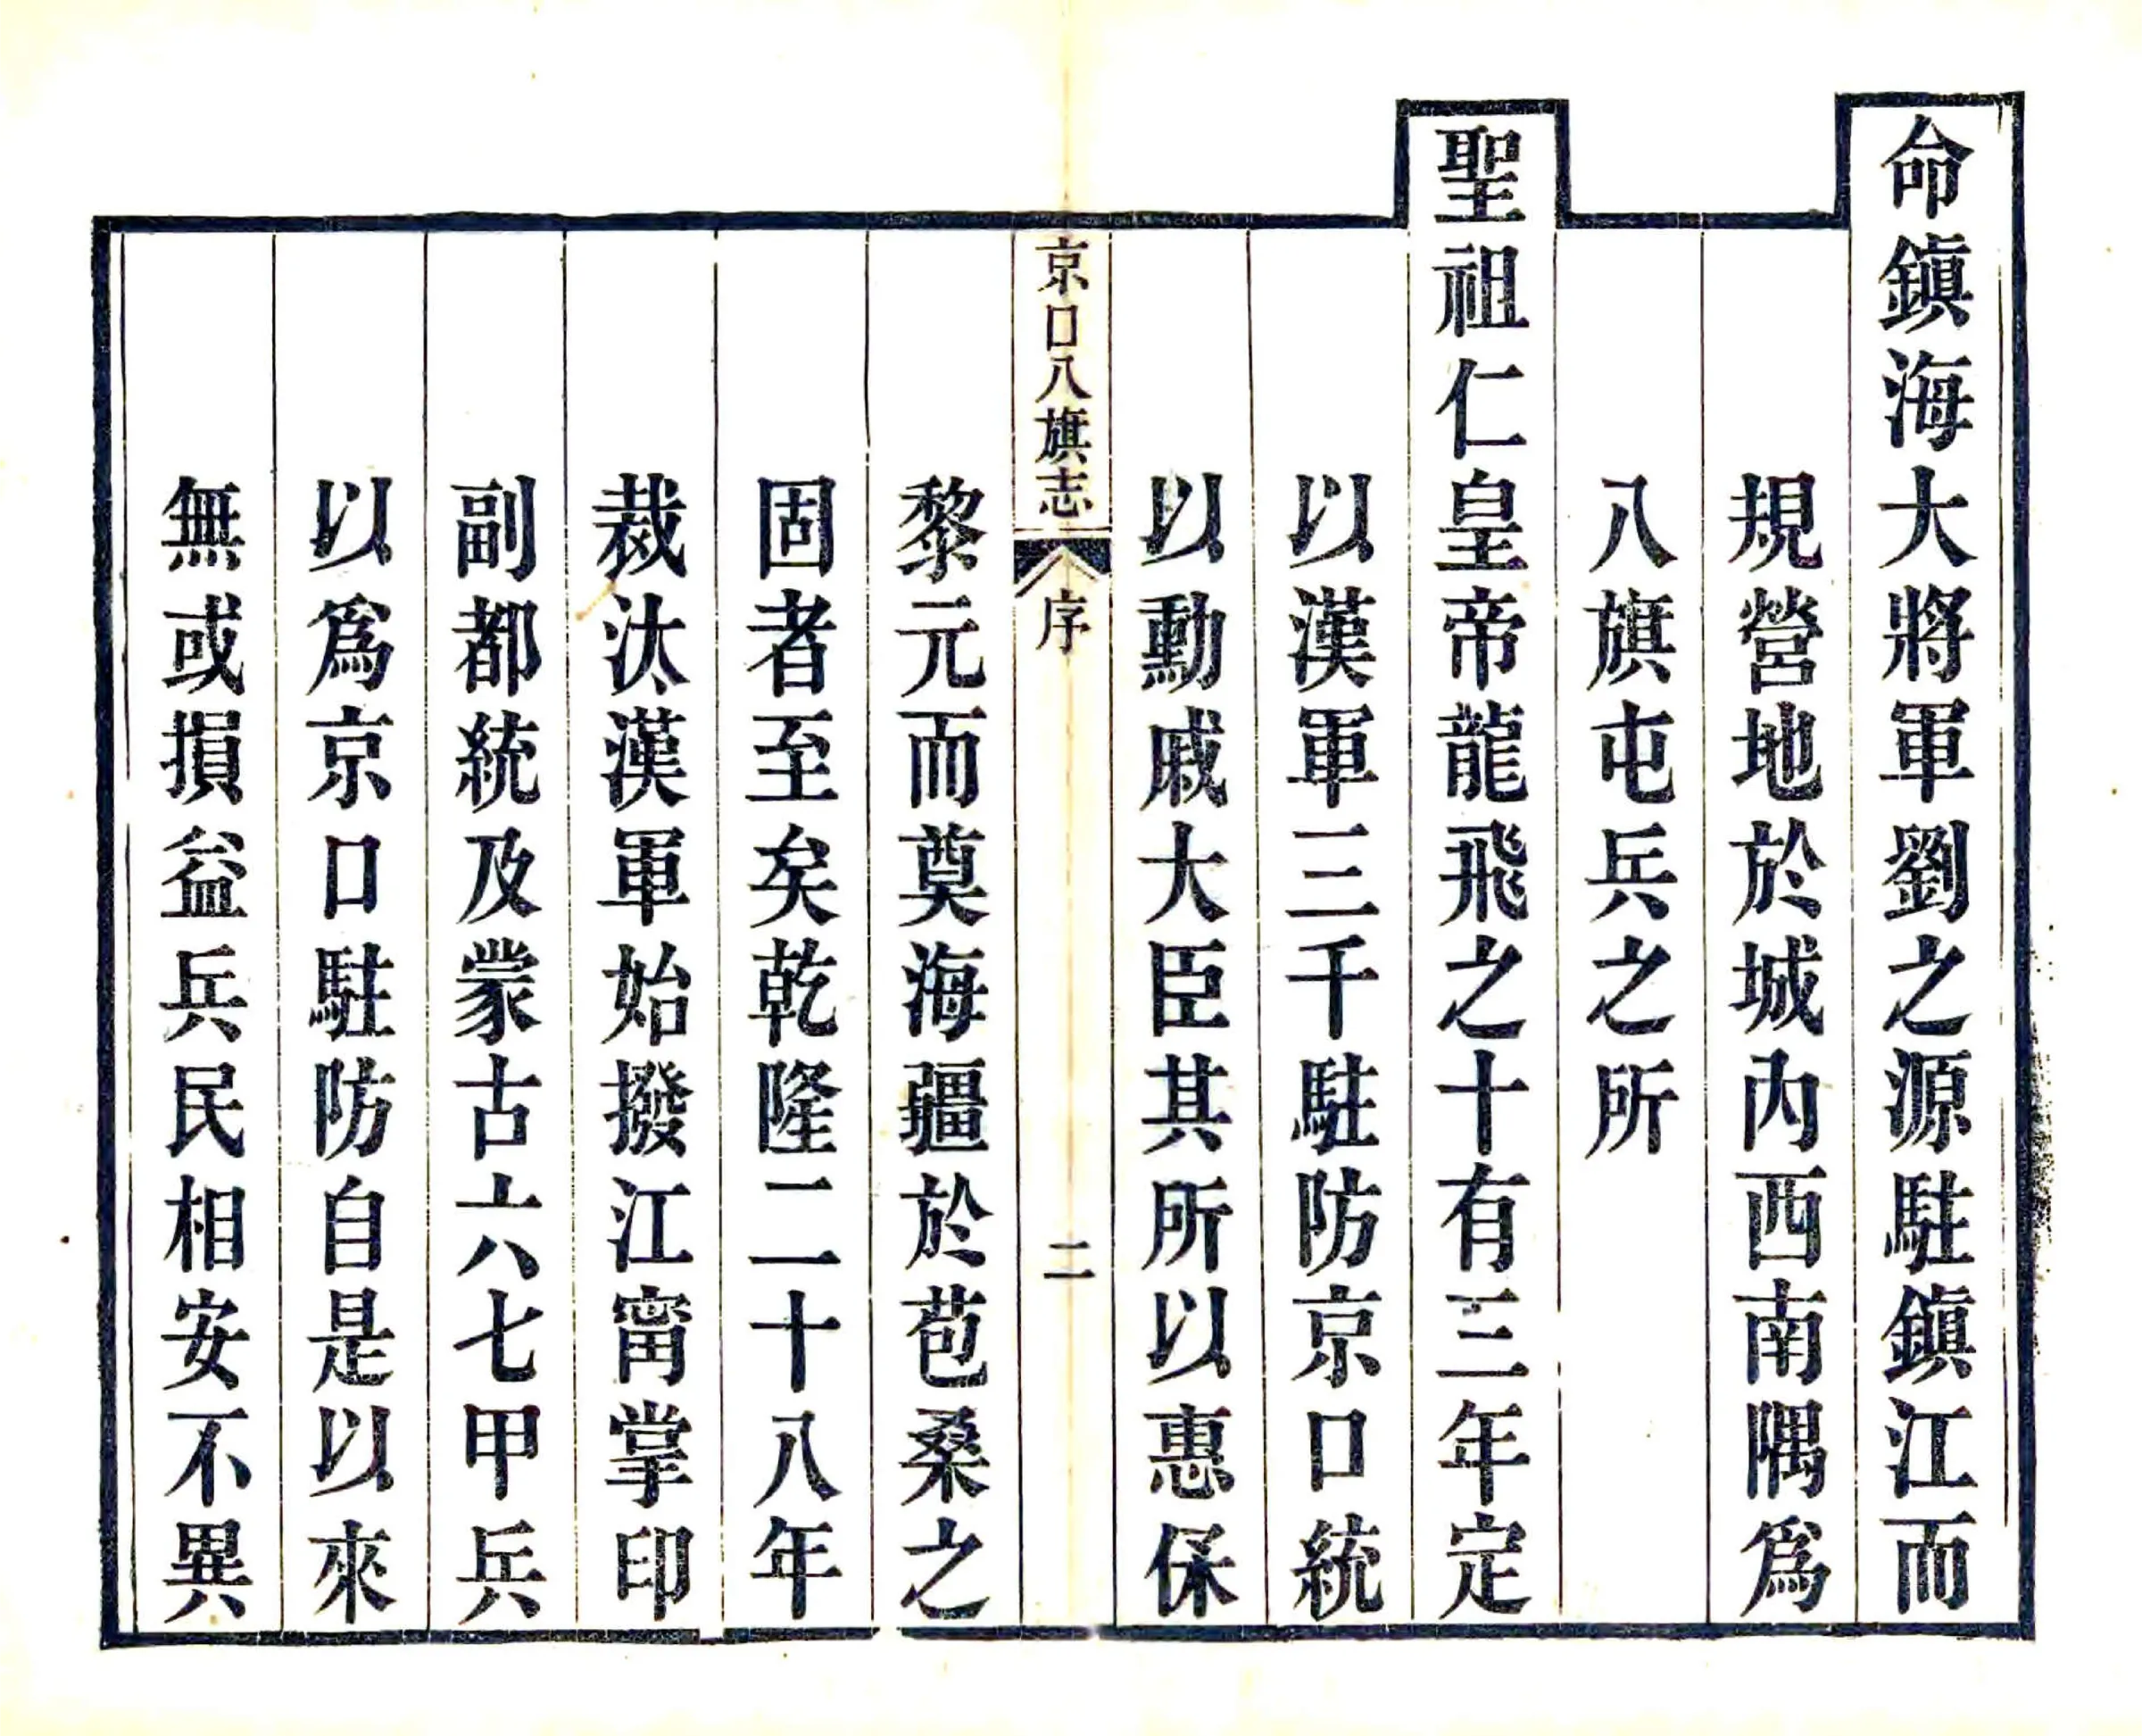 命鎭海大將軍劉之源駐鎭江而
規營地於城內西南隅爲
八旗屯兵之所
聖祖仁皇帝龍飛之十有三年定
以漢軍三千駐防京口統
以勳戚大臣其所以惠保
京口八旗志 序 二
黎元而奠海疆於苞桑之
固者至矣乾隆二十八年
裁汰漢軍始撥江甯掌印
副都統及蒙古六七甲兵
以爲京口駐防自是以來
無或損益兵民相安不異